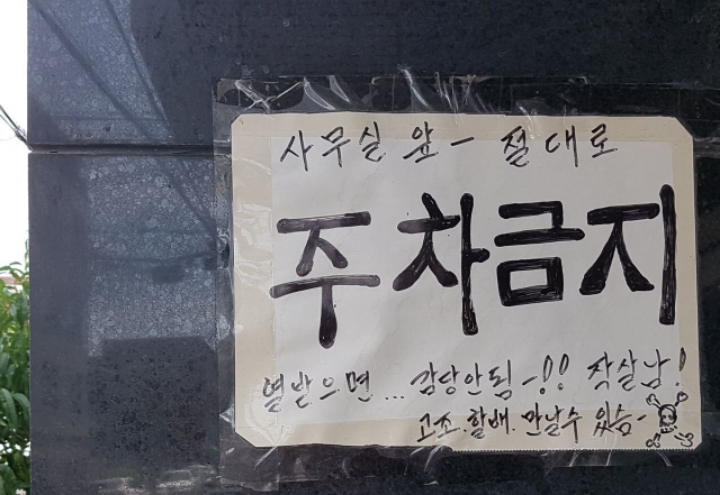 사무실 앞- 절대로
주차금지
열받으면 ... 감당안됨-!! 작살남!
고조.할배.만날수 있슴-